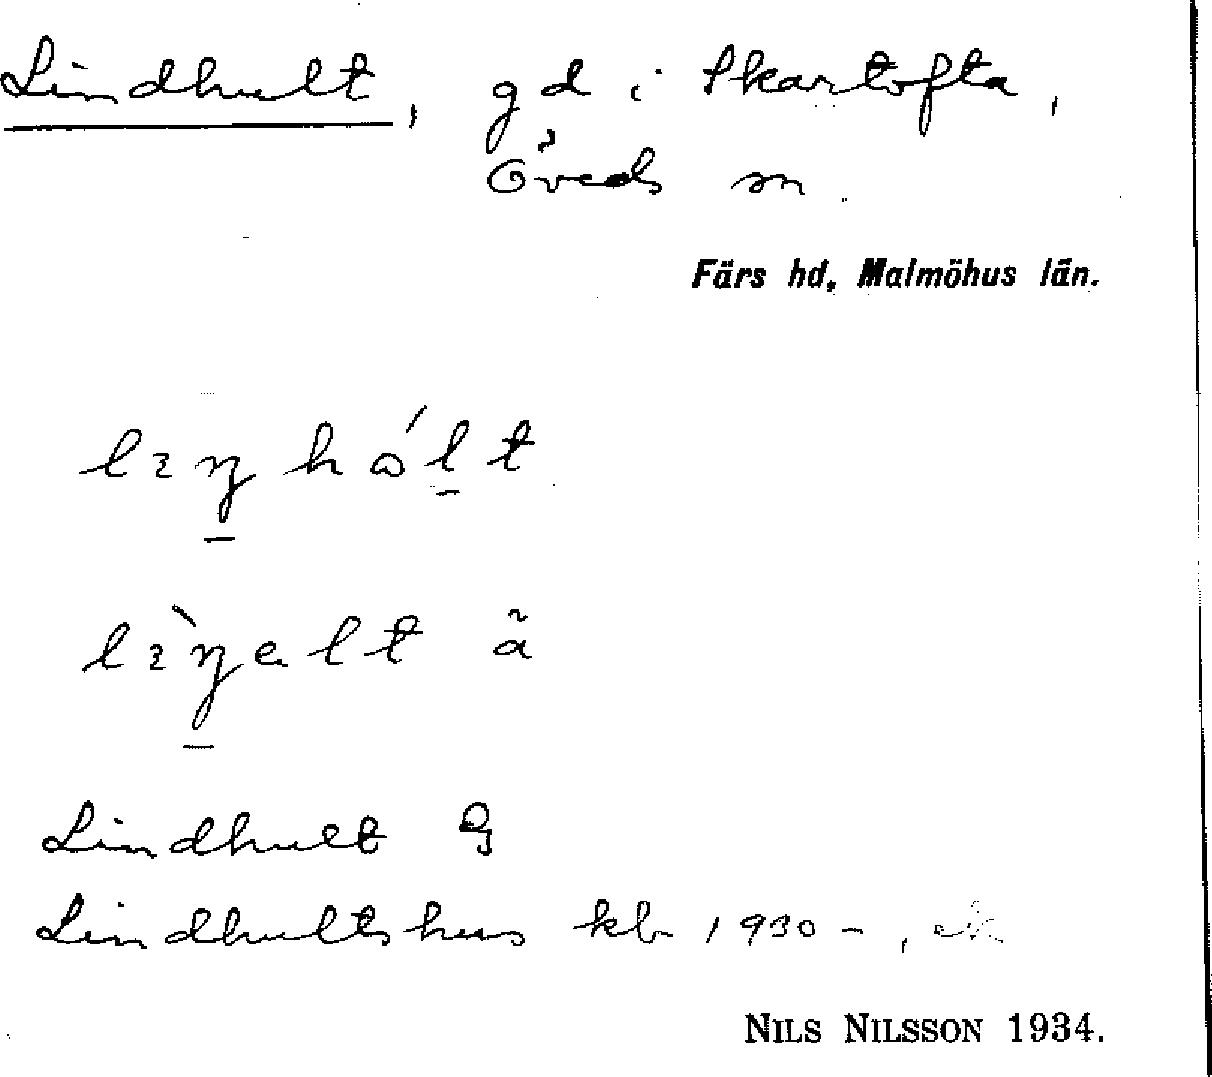 Lindhult, gd i Skartofta,
Öveds sn.
Färs hd, Malmöhus län.
Lindhult G
Lindhultshus kb 1930 –, ek
NILS NILSSON 1934.